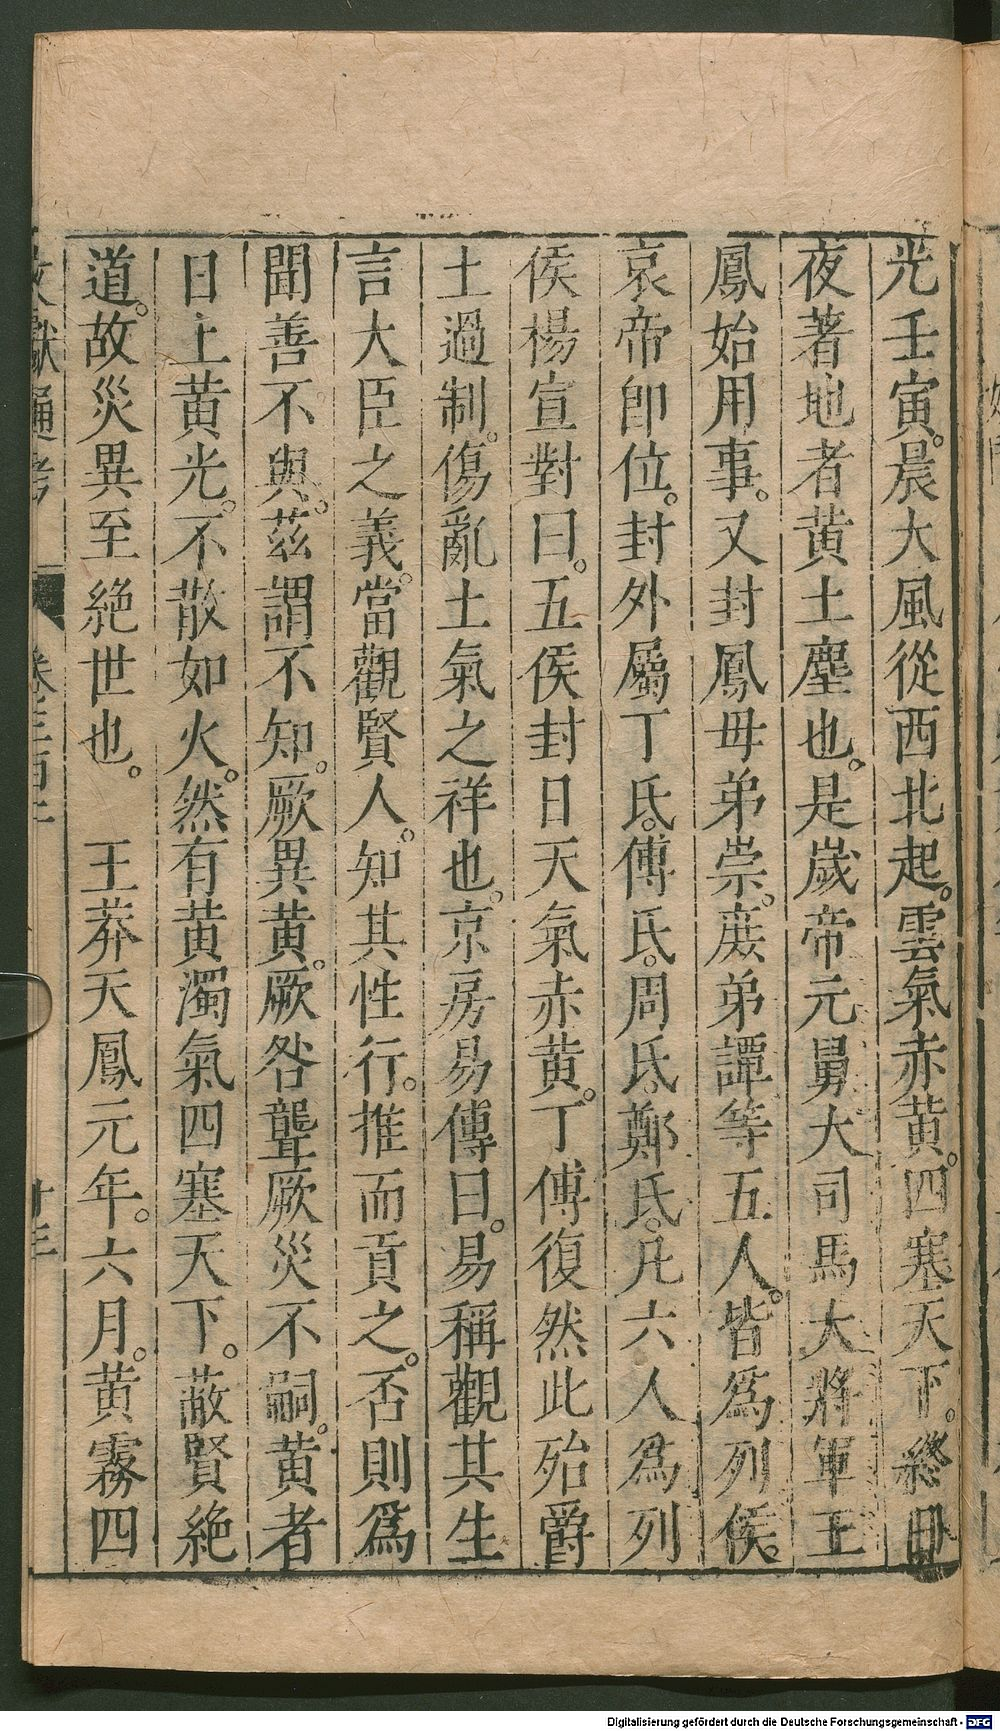 光壬寅。晨大風從西北起。雲氣赤黃。四塞天下。終日
夜著地者黃土塵也。是歲帝元舅大司馬大將軍王
鳳始用事。又封鳳母弟崇。庶弟譚等五人。皆爲列侯。
哀帝卽位。封外屬丁氏。傅氏。周氏。鄭氏。凡六人爲列
侯楊宣對曰。五侯封日天氣赤黃。丁傅復然此殆爵
土過制。傷亂土氣之祥也。京房易傳曰。易稱觀其生
言大臣之義。當觀賢人。知其性行。推而貢之。否則爲
聞善不與。茲謂不知。厥異黃。厥咎聾厥災不嗣。黃者
日上黃光。不散如火。然有黃濁氣四塞天下。蔽賢絕
道。故災異至絕世也。　王莽天鳳元年。六月。黃霧四
文獻通考
卷三百
廿三
Digitalisierung gefördert durch die Deutsche Forschungsgemeinschaft - DFG